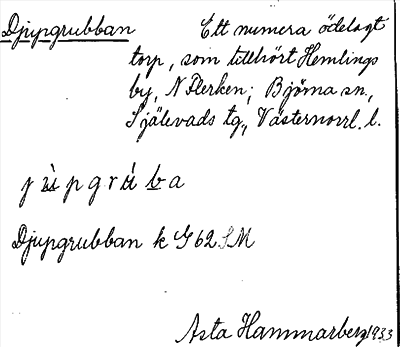 Djupgrubban Ett numera ödelagt
torp, som tillhört Hemlings
by, N Flerken; Björna sn.,
Själevads tg, Västernorrl. l.
jùpgrúba
Djupgrubban k G 62 SM
Asta Hammarberg 1933